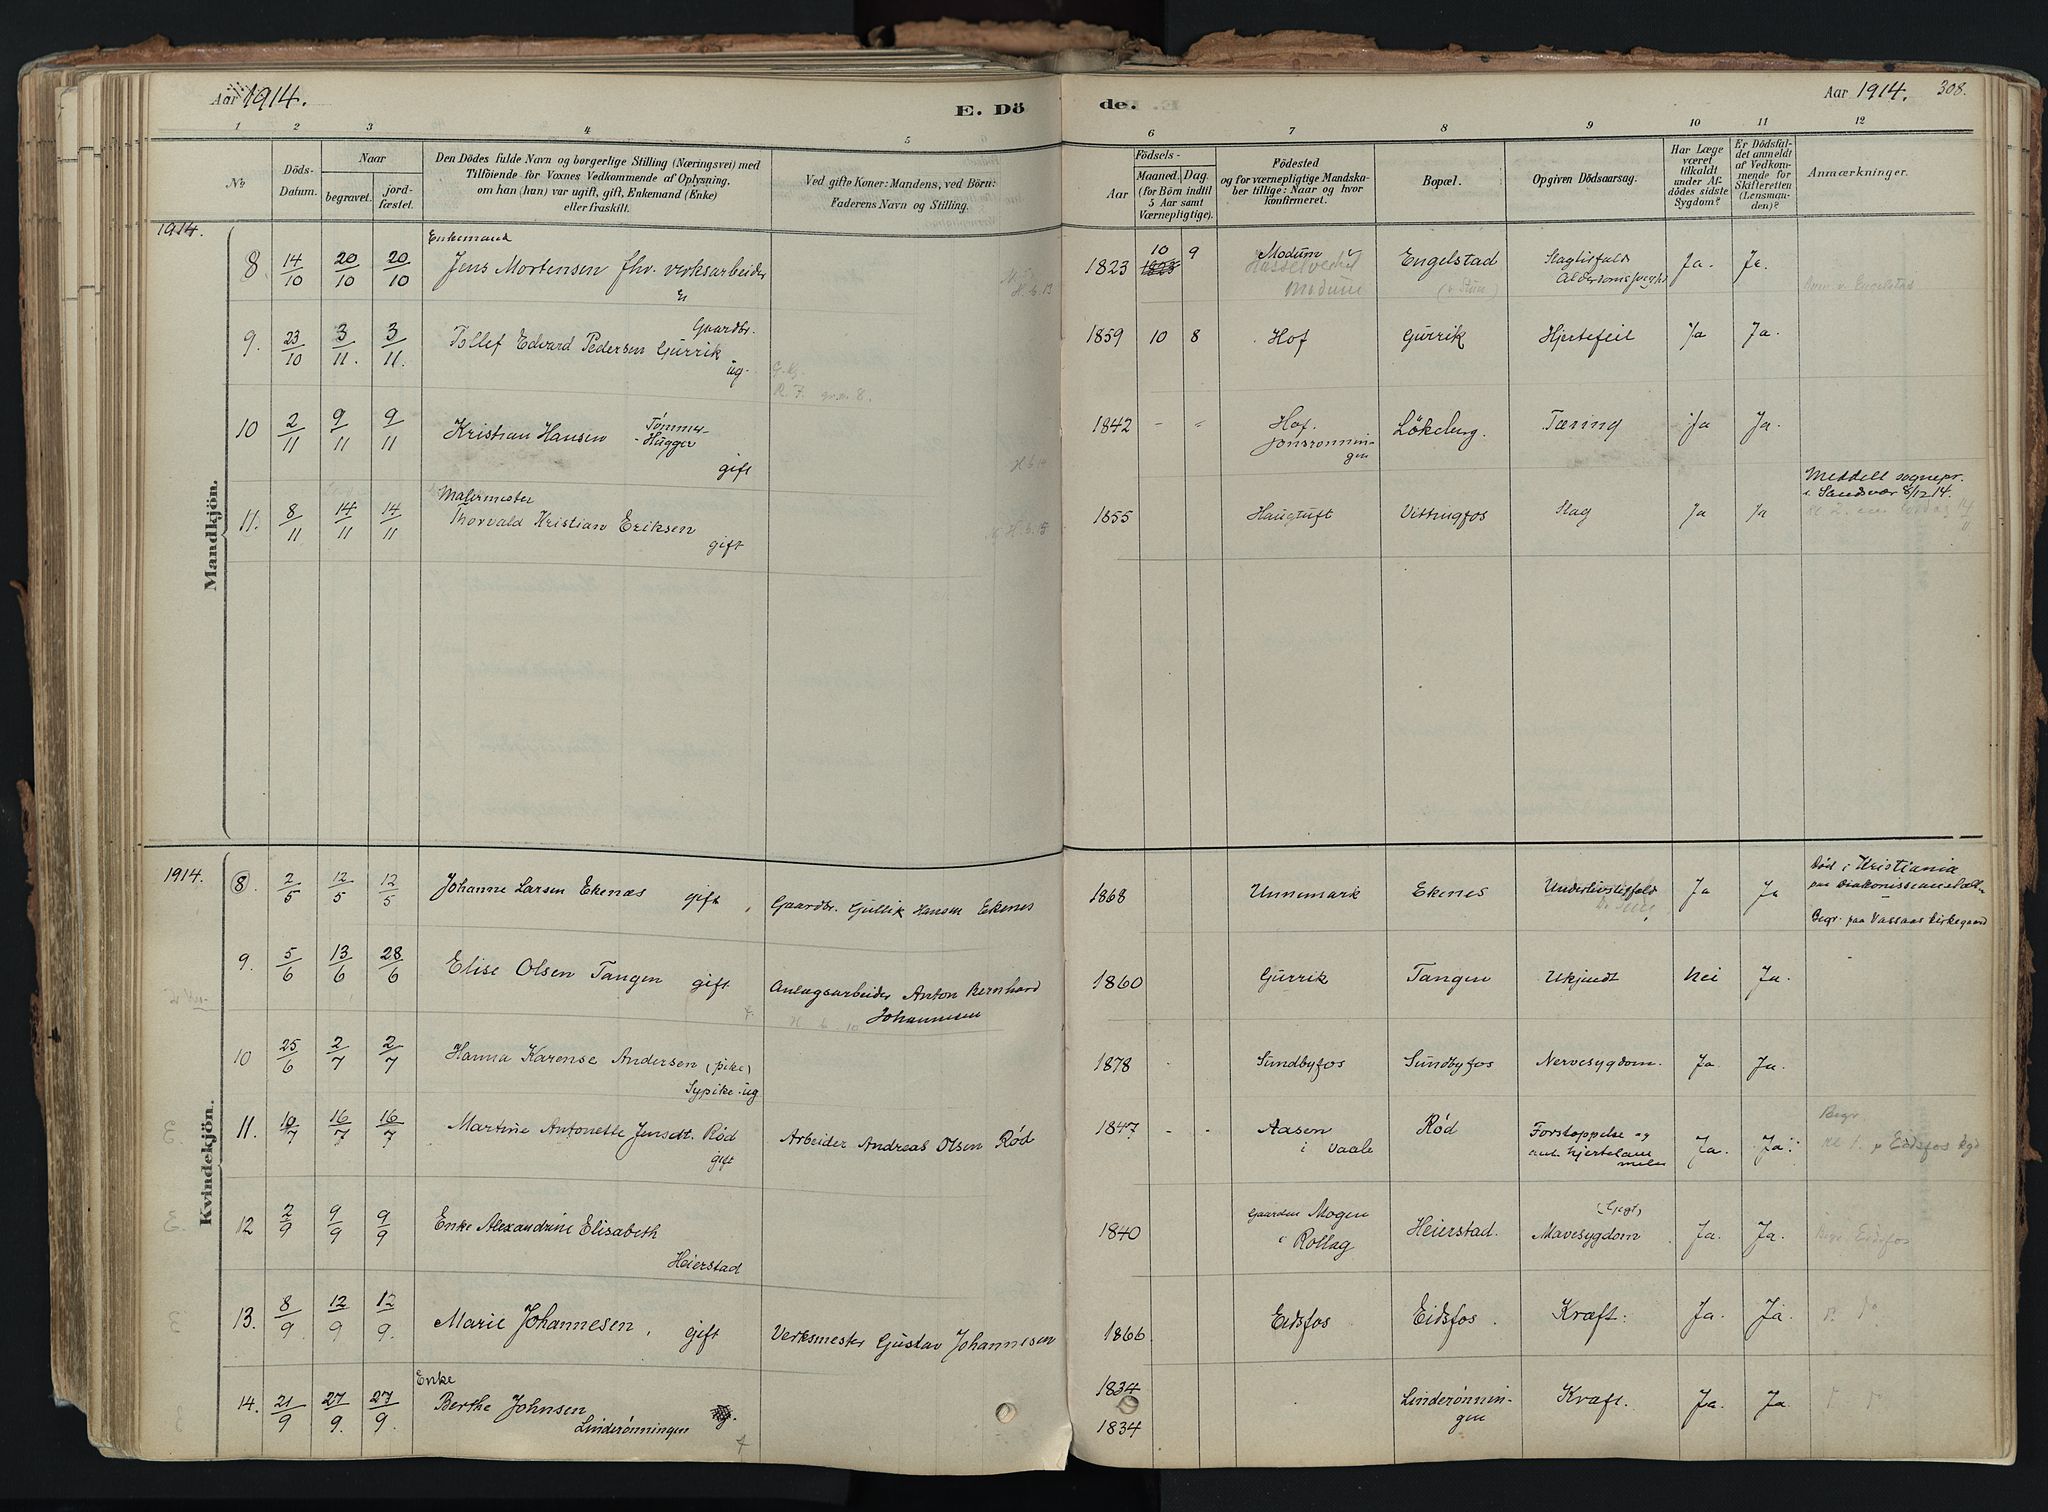 Aar 1914.
E. Döde.
Aar 1914. 308.
1 2 3 4 5 6 7 8 9 10 11 12
No
Döds-Datum.
Naar
begravet.
jord-fæstet.
Den Dödes fulde Navn og borgerlige Stilling (Næringsvei) med
Tilföiende for Voxnes Vedkommende af Oplysning,
om han (hun) var ugift, gift, Enkemand (Enke)
eller fraskilt.
Ved gifte Koner: Mandens, ved Börn:
Faderens Navn og Stilling.
Födsels-
Aar
Maaned. Dag.
(for Börn indtil
5 Aar samt
Værnepligtige).
Födested
og for værnepligtige Mandska-
ber tillige: Naar og hvor
konfirmeret.
Bopæl.
Opgiven Dödsaarsag.
Har Læge
været
tilkaldt
under Af-
dödes sidste
Sygdom?
Er Dödsfal-
det anmeldt
af Vedkom-
mende for
Skifteretten
(Lensman-
den)?
Anmærkninger.
1914.
Mandkjön.
Enkemand
8 14/10 20/10 20/10 Jens Mortensen fhv. verksarbeider 1823 10 9 Modum Engelstad Slagtilfæld Ja. Ja.
Modum
9. 23/10 3/11 3/11. Tollef Edvard Pedersen Gurrik Gaardbr. ug. 1859 10 8 Hof Gurrik Hjertefeil Ja Ja.
10 2/11 9/11 9/11 Kristian Hansen Tømmer-Hugger gift 1842 - " Hof. Jonsrønningen Løkeberg. Tæring Ja Ja.
Malermester
11. 8/11 14/11 14/11 Thorvald Kristian Eriksen gift 1855 Haugtuft Vittingfos Slag Ja Ja
Meddelt sognepr.
i Sandsvær 8/12 14.
1914.
Kvindekjön.
8. 2/5 12/5 12/5 Johanne Larsen Ekenæs gift Gaardbr. Gullik Hansen Ekenes 1868 Unnemark Ekenes Underlivstilfæld Ja Ja
Død i Kristiania
paa Diakonisseanstalt
Begr. paa Vassaas kirkegaard
9. 5/6 13/6 28/6 Elise Olsen Tangen gift Anlægsarbeider Anton Bernhard
Johannesen
1860 Gurrik Tangen Ukjendt Nei Ja.
10 25/6 2/7 2/7 Hanna Karense Andersen (pike)
Sypike - ug
1878 Sundbyfos Sundbyfos Nervesygdom. Ja Ja.
11. 10/7 16/7 16/7 Martine Antonette Jensdt. Rød
gift
Arbeider Andreas Olsen Rød 1847 - - Aasen
i Vaale
Rød Forstoppelse og
Ja. Ja.
p Eidsfos kgd
12 2/9 9/9 9/9 Enke Alexandrine Elisabeth
Heierstad
1840 Gaarden Mogen
i Rollag
Heierstad. Mavesygdom Ja. Ja.
Begr. Eidsfos
13. 8/9 12/9 12/9. Marie Johannesen, gift Verksmester Gustav Johannesen 1866 Eidsfos Eidsfos. Kræft. Ja. Ja.
Enke
14. 21/9 27/9. 27/9. Berthe Johnsen
Linderønningen
1834
1834
Linderønnin-
gen
Kræft. Ja. Ja.